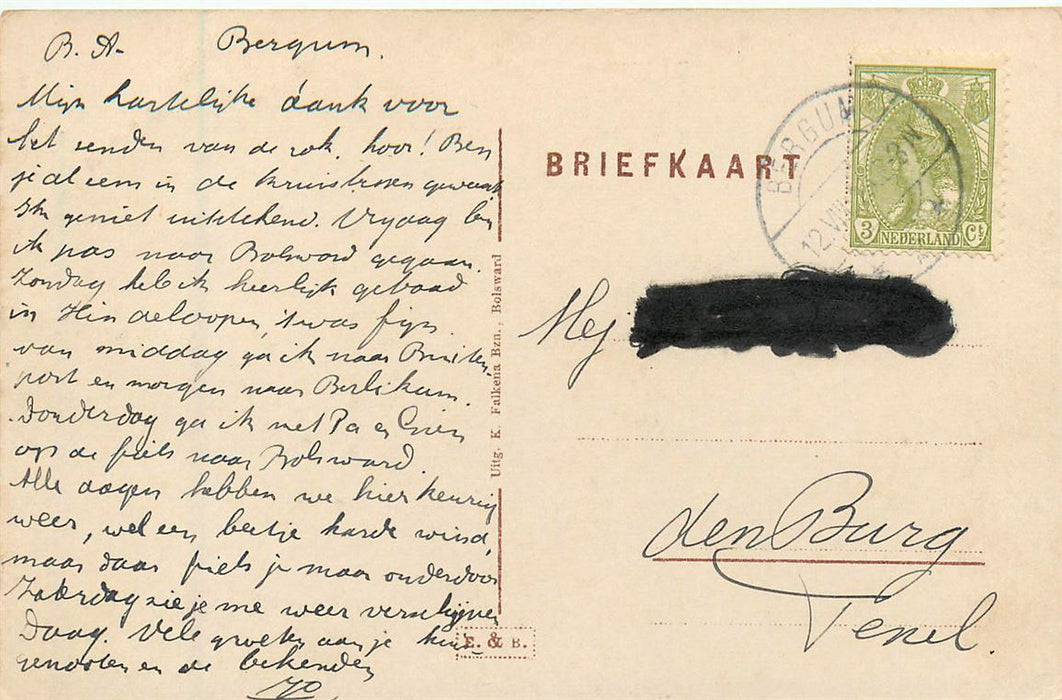 B. A. Bergum.
Mijn hartelijke dank voor
het zenden van de rok, hoor! Ben
je al eens in de geweest
Ik geniet uitstekend. Vrijdag ben
ik pas naar Bolsward gegaan.
Zondag heb ik heerlijk gebaad
in Hindeloopen, 't was fijn.
van middag ga ik naar Buiten-
post en morgen naar Berlikum.
Donderdag ga ik met Pa en
op de fiets naar Bolsward.
Alle dagen hebben we hier keurig
weer, wel een beetje harde wind,
maar daar fiets je maar onderdoor
Zaterdag zie je me weer verschijnen
Daag. Vele groeten aan je huis-
genooten en de bekenden
Jo
Uitg. K. Falkena Bzn., Bolsward
E. & B.
BRIEFKAART
BERGUM
12.VIII
3 NEDERLAND Ct
Mej
den Burg
Texel.